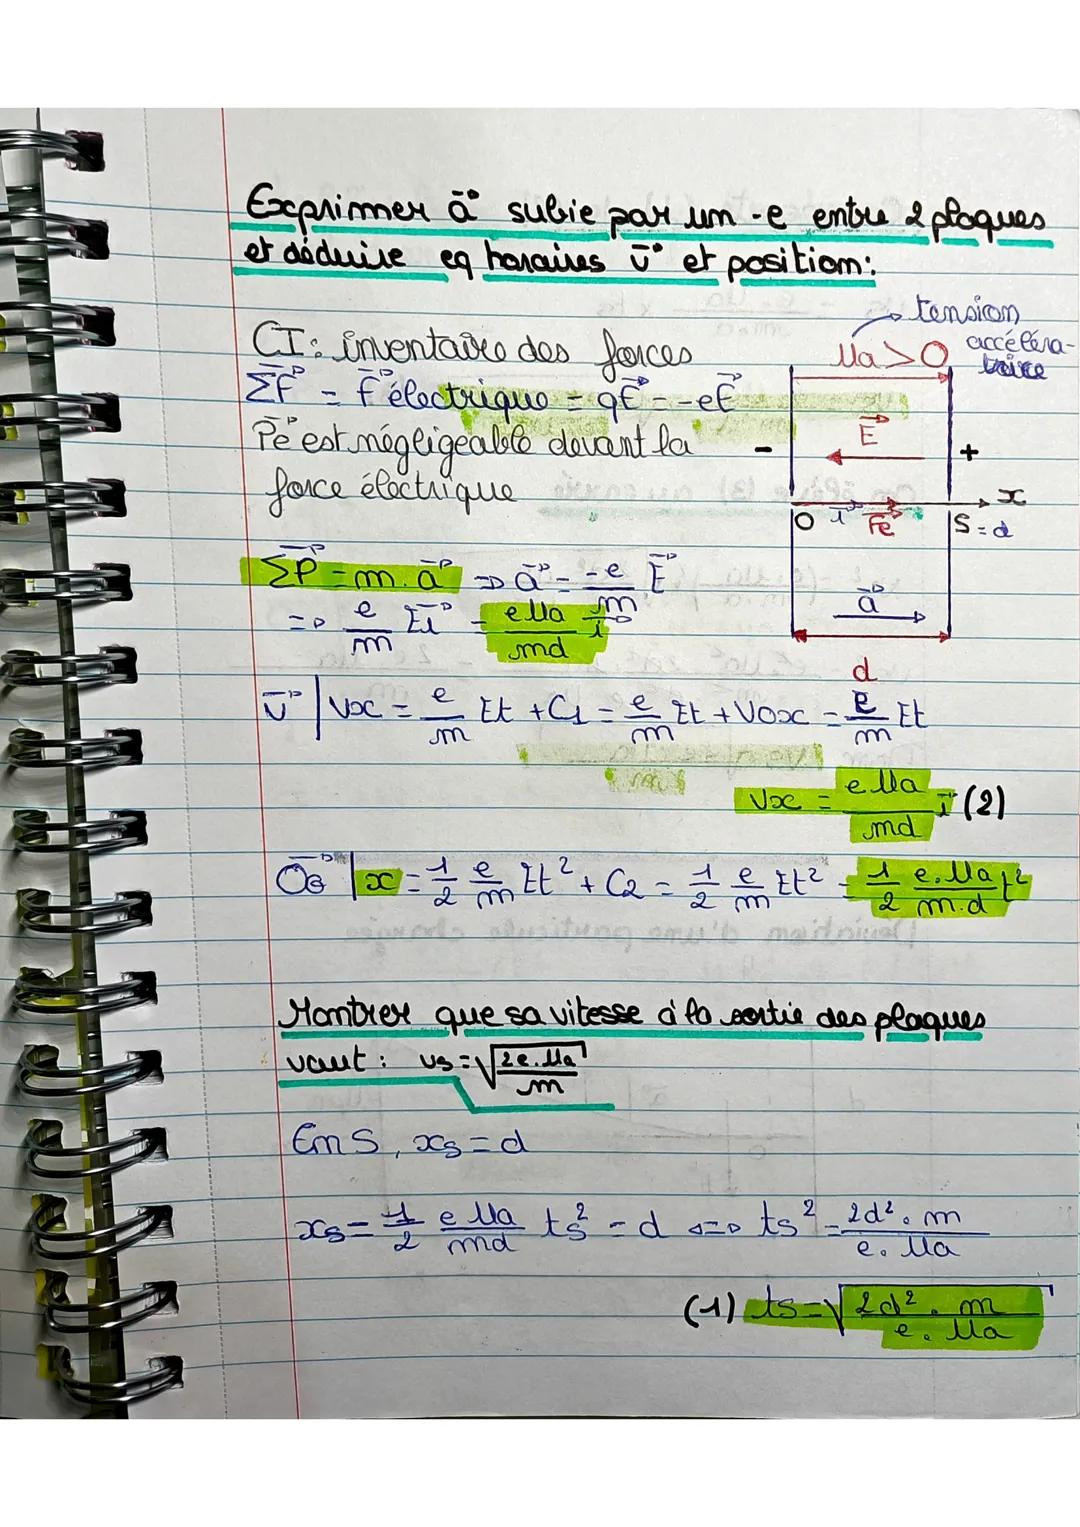 Exprimer a⃗ subie par un -e entre 2 plaques
et déduire eq horaires v⃗ et position :
tension
accéléra-
trice
Ua > O
CI : inventaire des forces
ΣF⃗ = F⃗ électrique = qE⃗ = -eE⃗
P⃗e est négligeable devant la
force électrique
E⃗
- +
O i⃗ F⃗e S = d x
a⃗
d
ΣF⃗ = m. a⃗ => a⃗ = -e/m E⃗
=> e/m E i⃗ = eUa/md i⃗
v⃗ | Vx = e/m Et + C1 = e/m Et + Vox = e/m Et
Vx = eUa/md i⃗ (2)
OG⃗ | x = 1/2 e/m Et² + C2 = 1/2 e/m Et² = 1/2 e.Ua/m.d t²
Montrer que sa vitesse à la sortie des plaques
vaut : vs = √(2e.Ua/m)
En S, xs = d
xs = 1/2 eUa/md ts² = d <=> ts² = 2d².m/e.Ua
(1) ts = √(2d².m/e.Ua)